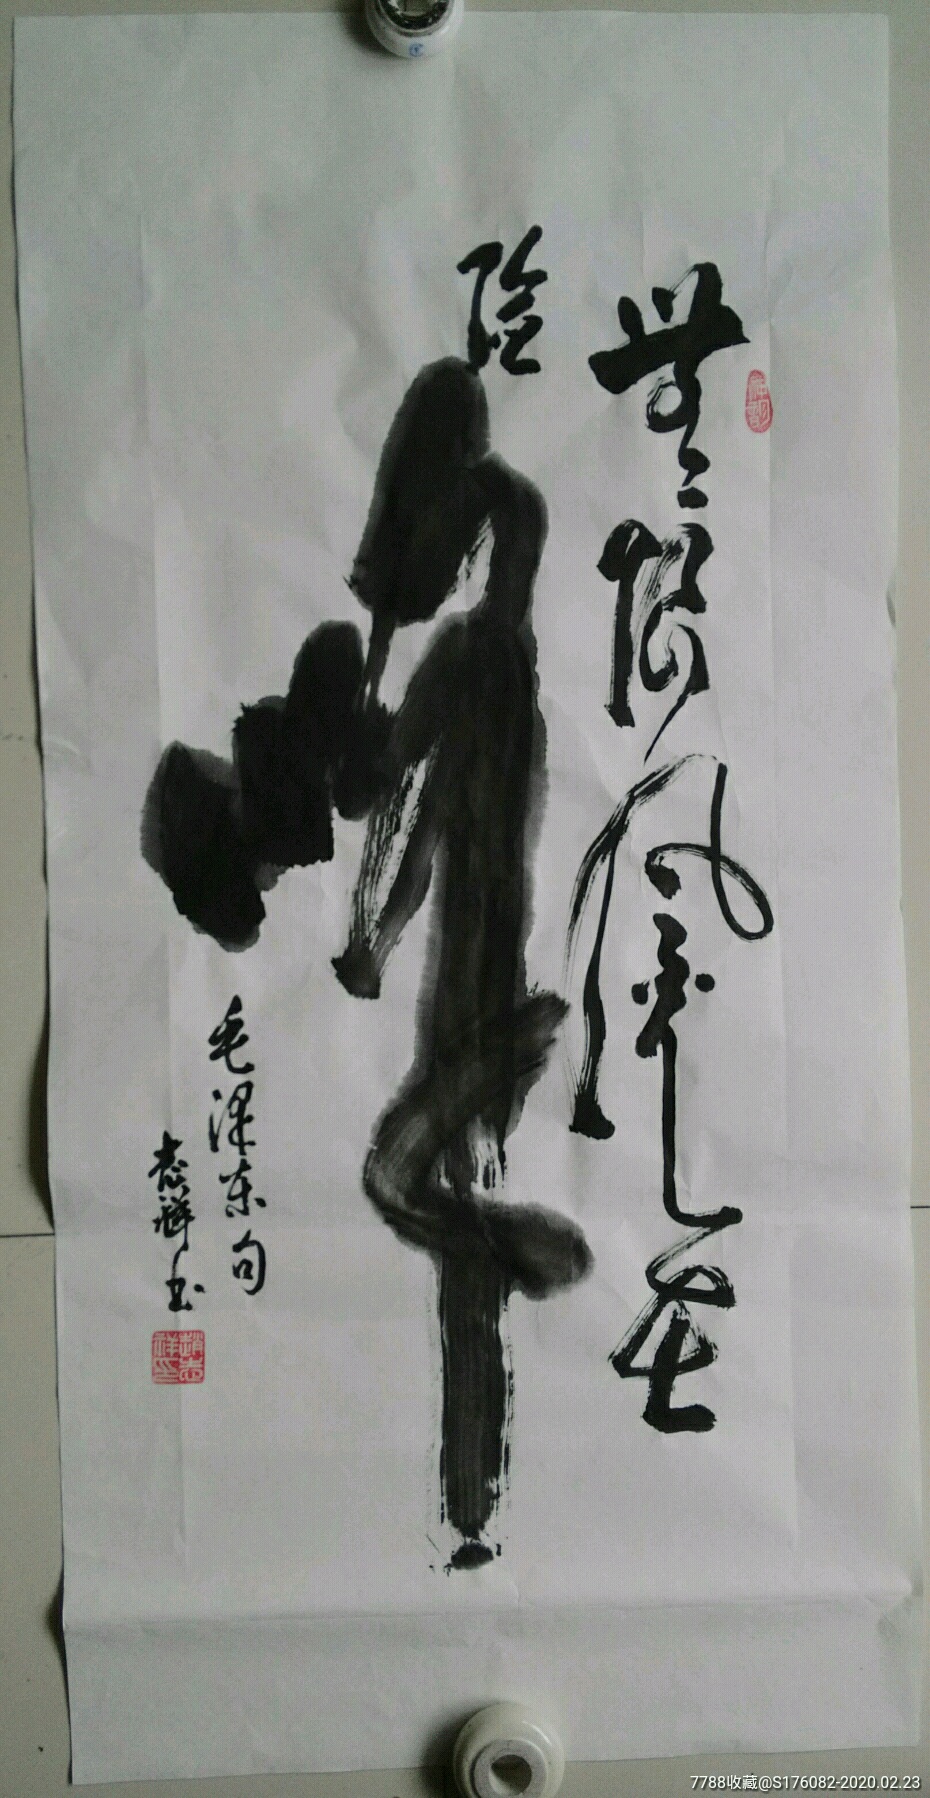 無限風光在
险峰
毛泽东句
志祥书
趙志祥印
7788收藏@S176082-2020.02.23